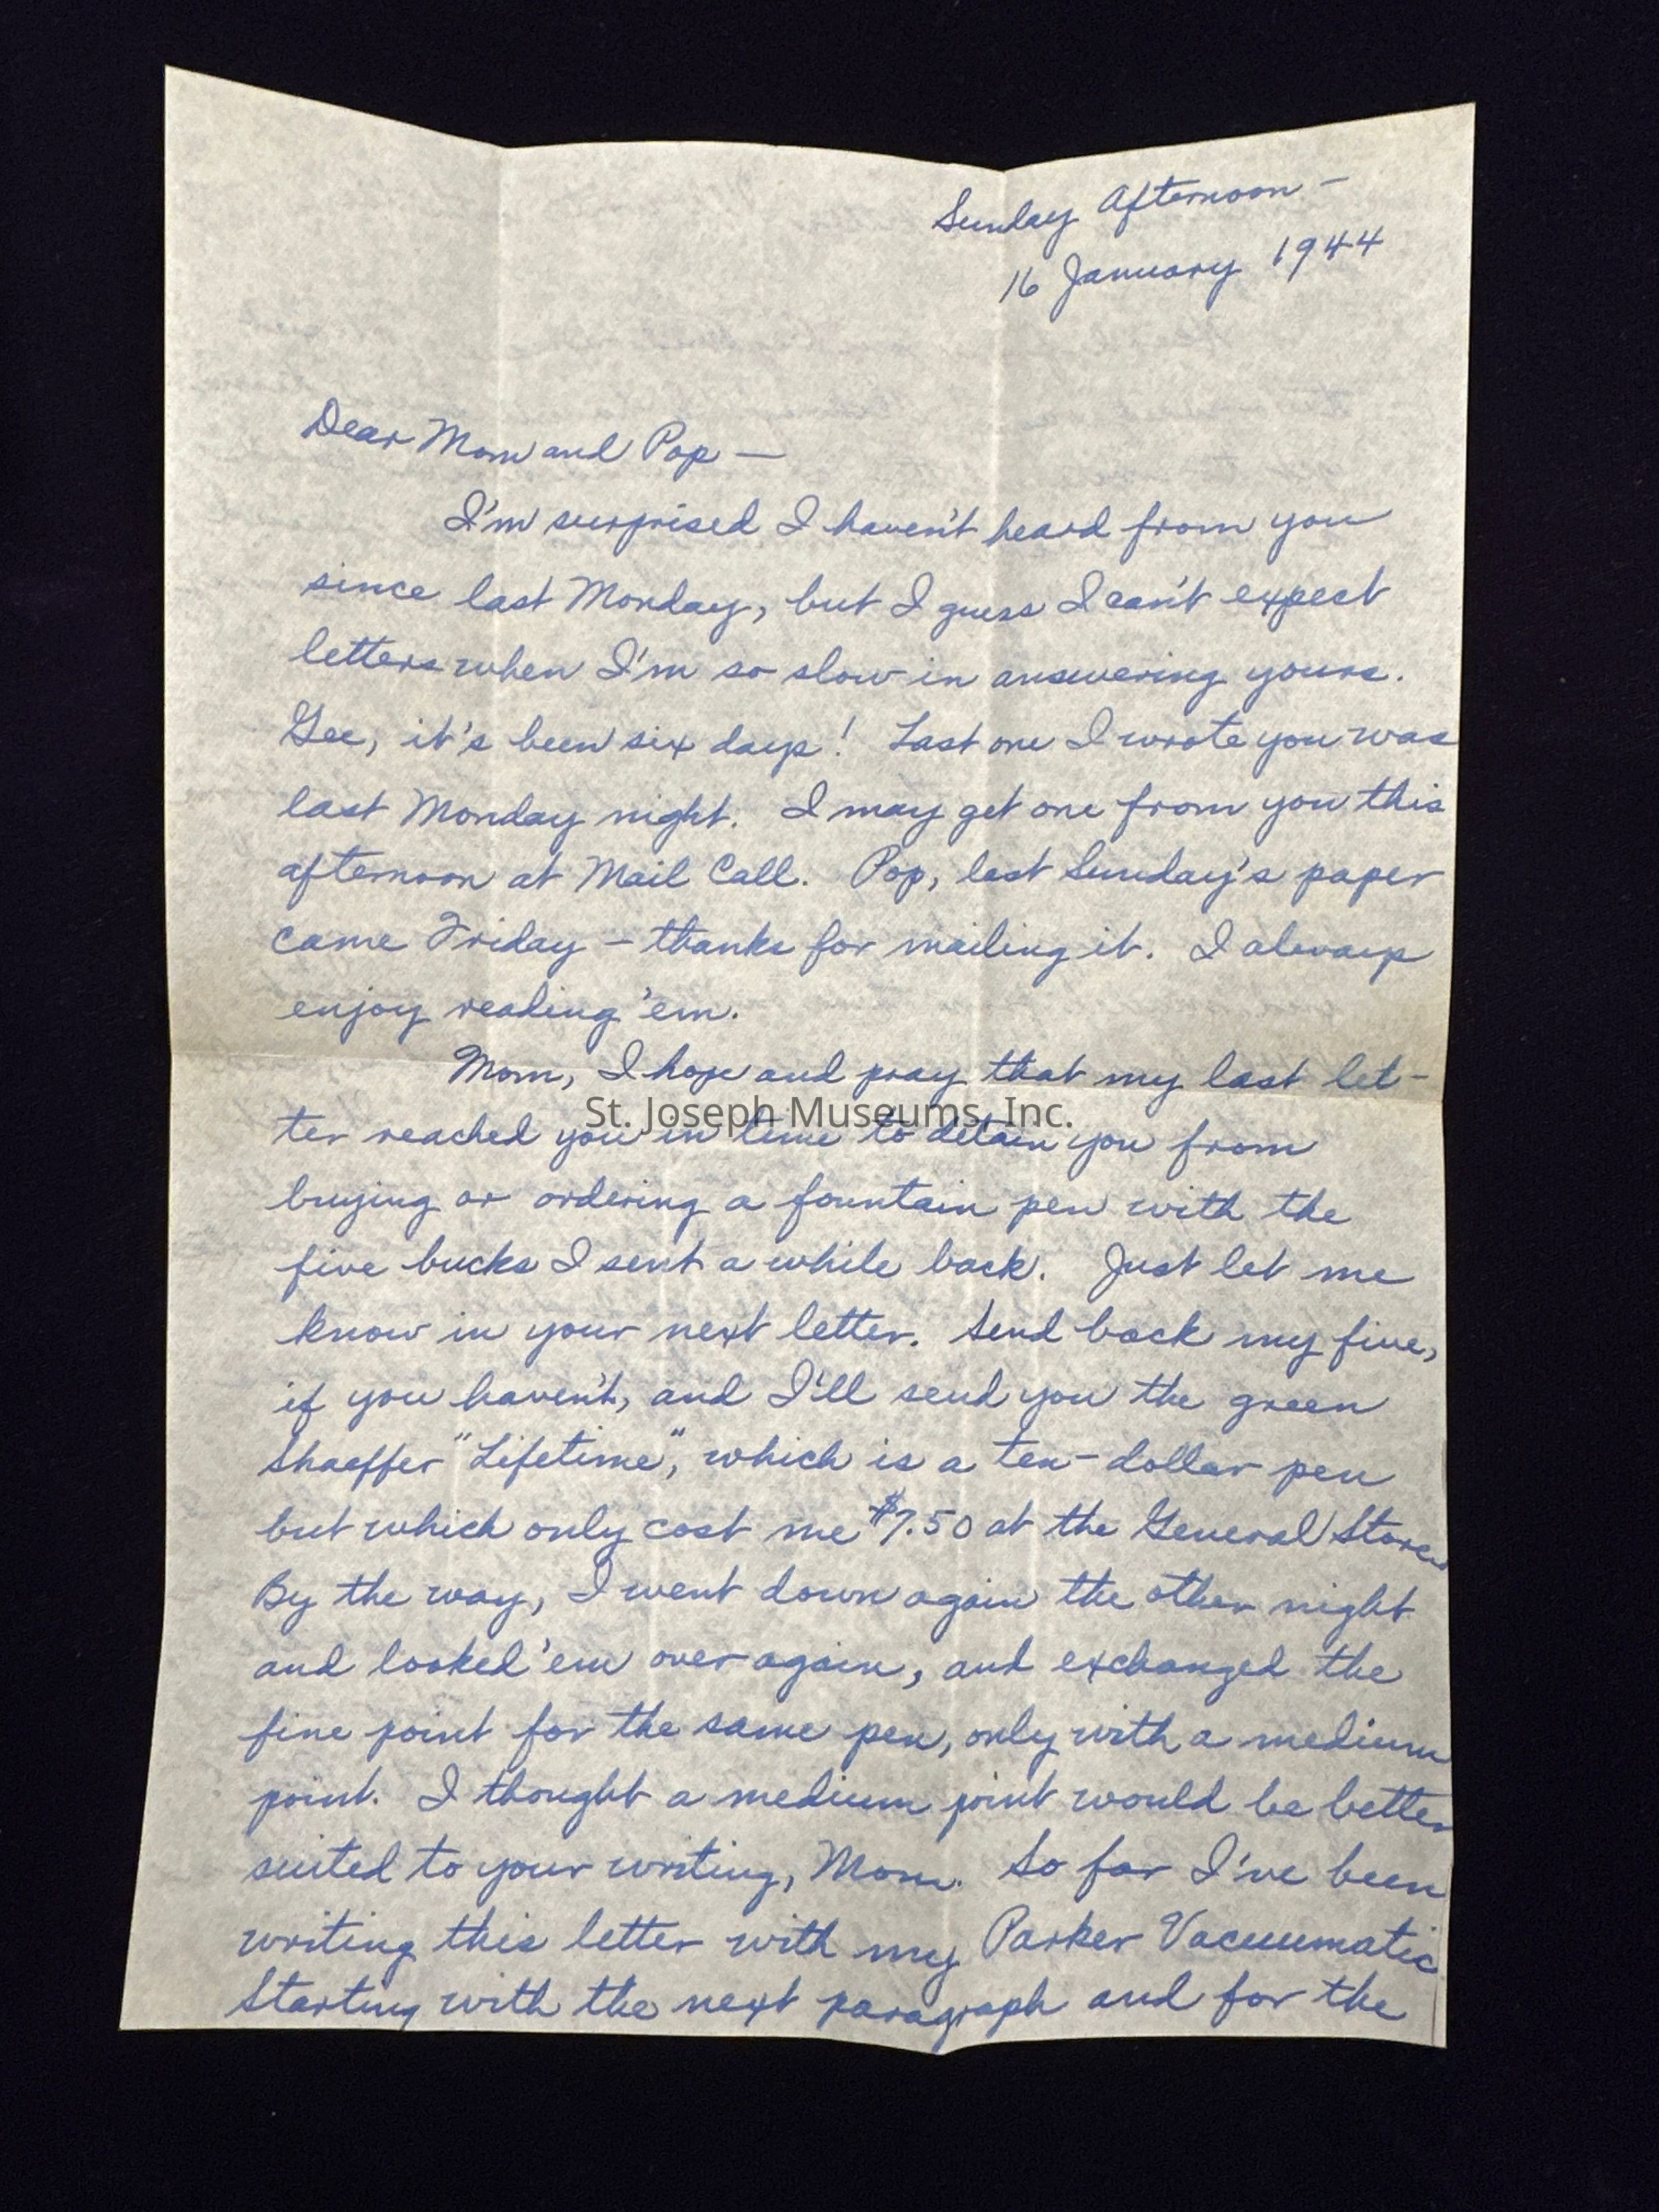 Sunday Afternoon —
16 January 1944
Dear Mom and Pop —
I'm surprised I haven't heard from you
since last Monday, but I guess I can't expect
letters when I'm so slow in answering yours.
Gee, it's been six days! Last one I wrote you was
last Monday night. I may get one from you this
afternoon at Mail Call. Pop, last Sunday's paper
came Friday — thanks for mailing it. I always
enjoy reading 'em.
Mom, I hope and pray that my last let-
St. Joseph Museums, Inc.
ter reached you in time to detain you from
buying or ordering a fountain pen with the
five bucks I sent a while back. Just let me
know in your next letter. Send back my five,
if you haven't, and I'll send you the green
Shaeffer "Lifetime", which is a ten-dollar pen
but which only cost me $7.50 at the General Store.
By the way, I went down again the other night
and looked 'em over again, and exchanged the
fine point for the same pen, only with a medium
point. I thought a medium point would be better
suited to your writing, Mom. So far I've been
writing this letter with my Parker Vacuumatic
Starting with the next paragraph and for the